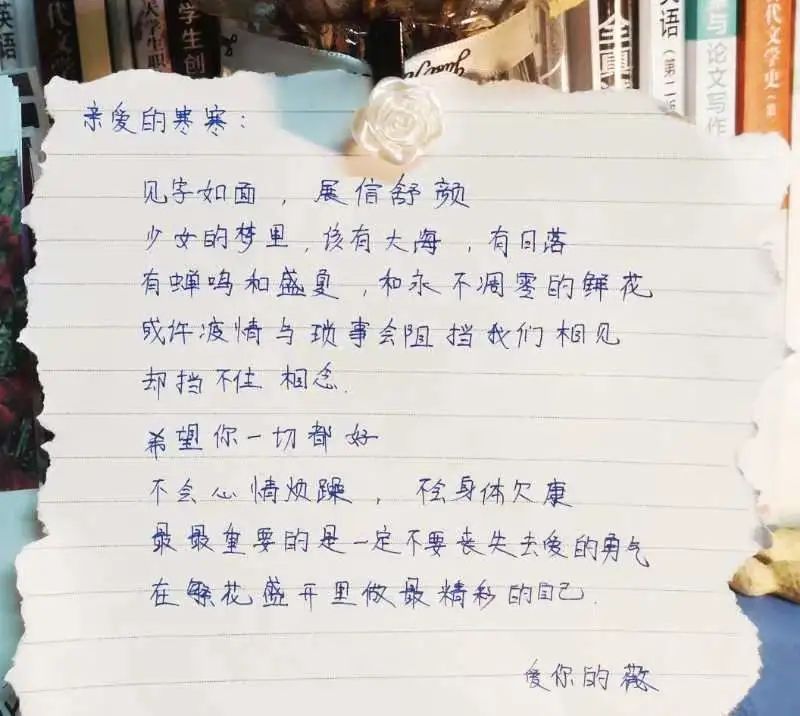 英语
代文学
大学生职
学生创
全真
英语(第二版
与论文写作
代文学史(
亲爱的寒寒:
见字如面,展信舒颜
少女的梦里,该有大海,有日落
有蝉鸣和盛夏,和永不凋零的鲜花
或许疫情与琐事会阻挡我们相见
却挡不住相念.
希望你一切都好
不会心情烦躁,不会身体欠康
最最重要的是一定不要丧失去爱的勇气
在繁花盛开里做最精彩的自己.
爱你的薇